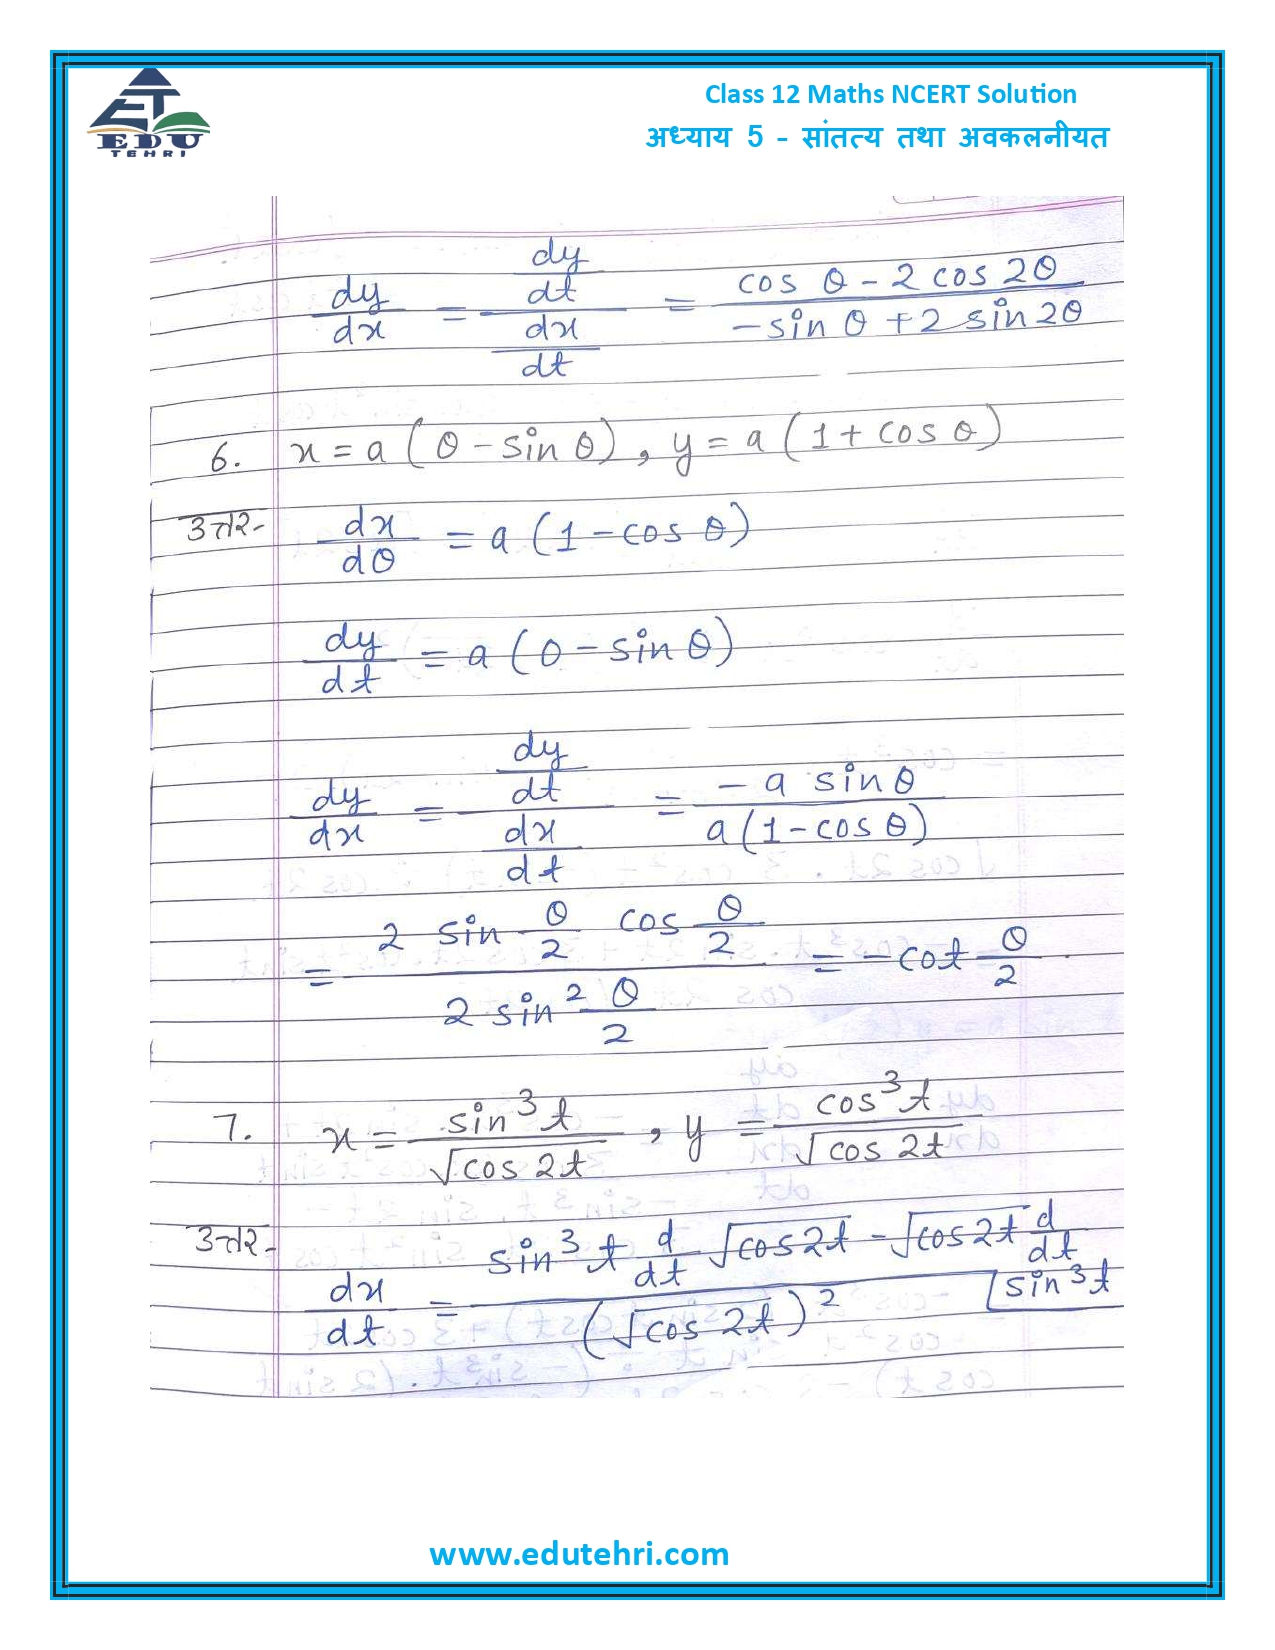 EDU
TEHRI
Class 12 Maths NCERT Solution
अध्याय 5 - सांतत्य तथा अवकलनीयत
dy/dx = (dy/dt)/(dx/dt) = (cos θ - 2 cos 2θ)/(-sin θ + 2 sin 2θ)
6. x = a(θ - sin θ), y = a(1 + cos θ)
उत्तर- dx/dθ = a(1 - cos θ)
dy/dt = a(0 - sin θ)
dy/dx = (dy/dt)/(dx/dt) = (-a sin θ)/(a(1 - cos θ))
= (2 sin θ/2 cos θ/2)/(2 sin² θ/2) = -cot θ/2
7. x = sin³t/√cos 2t, y = cos³t/√cos 2t
उत्तर- dx/dt = (sin³t d/dt √cos 2t - √cos 2t d/dt sin³t)/(√cos 2t)²
www.edutehri.com